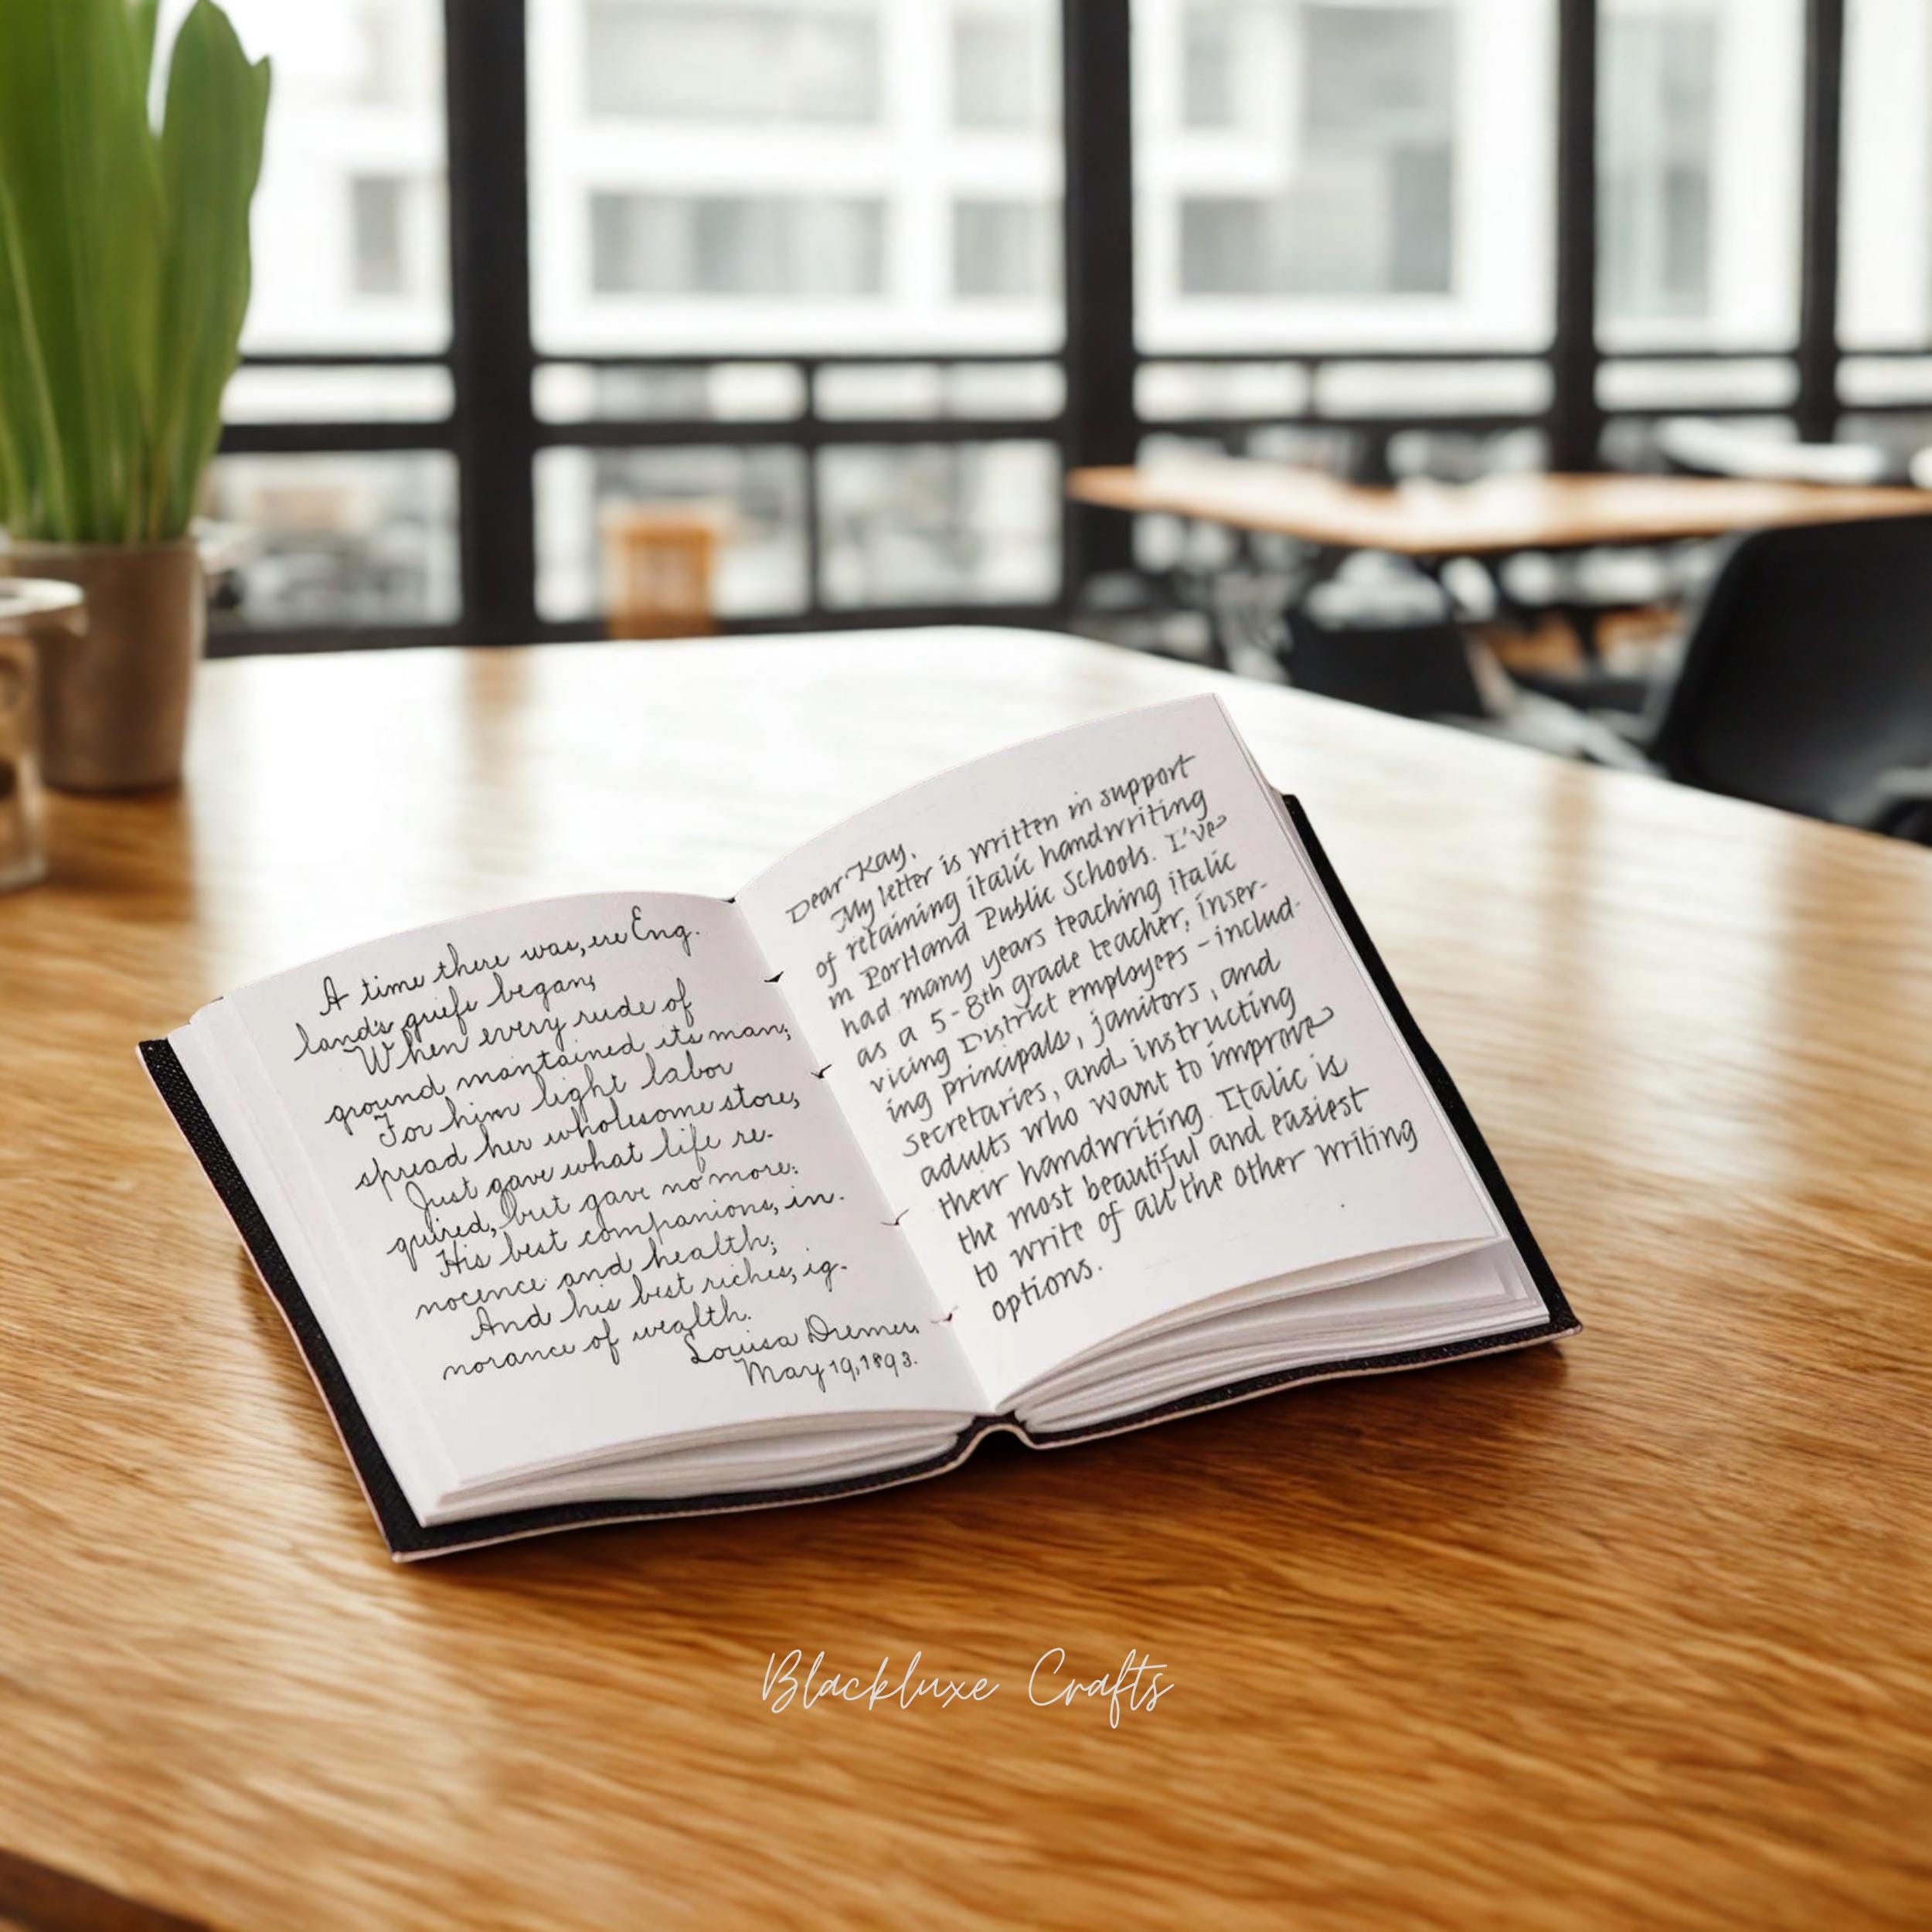 A time there was, ere Eng.
land's griefs began,
When every rude of
ground maintained its man;
For him light labor
spread her wholesome store,
Just gave what life re-
quired, but gave no more:
His best companions, in-
nocence and health;
And his best riches, ig-
norance of wealth.
Louisa
May 19, 1893.
Dear Kay,
My letter is written in support
of retaining italic handwriting
in Portland Public Schools. I've
had many years teaching italic
as a 5-8th grade teacher, inser-
vicing District employees - includ-
ing principals, janitors, and
secretaries, and instructing
adults who want to improve
their handwriting. Italic is
the most beautiful and easiest
to write of all the other writing
options.
Blackluxe Crafts